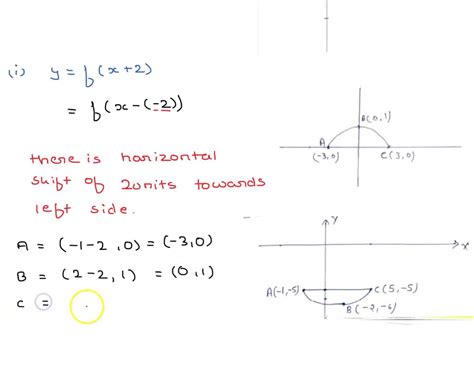 (i) y = f(x+2)
= f(x-(-2))
there is horizontal
shift of 2units towards
left side.
A = (-1-2, 0) = (-3,0)
B = (2-2, 1) = (0,1)
C =
B(0,1)
A
(-3,0)
C(3,0)
Y
x
A(-1,-5)
C(5,-5)
B(-2,-6)